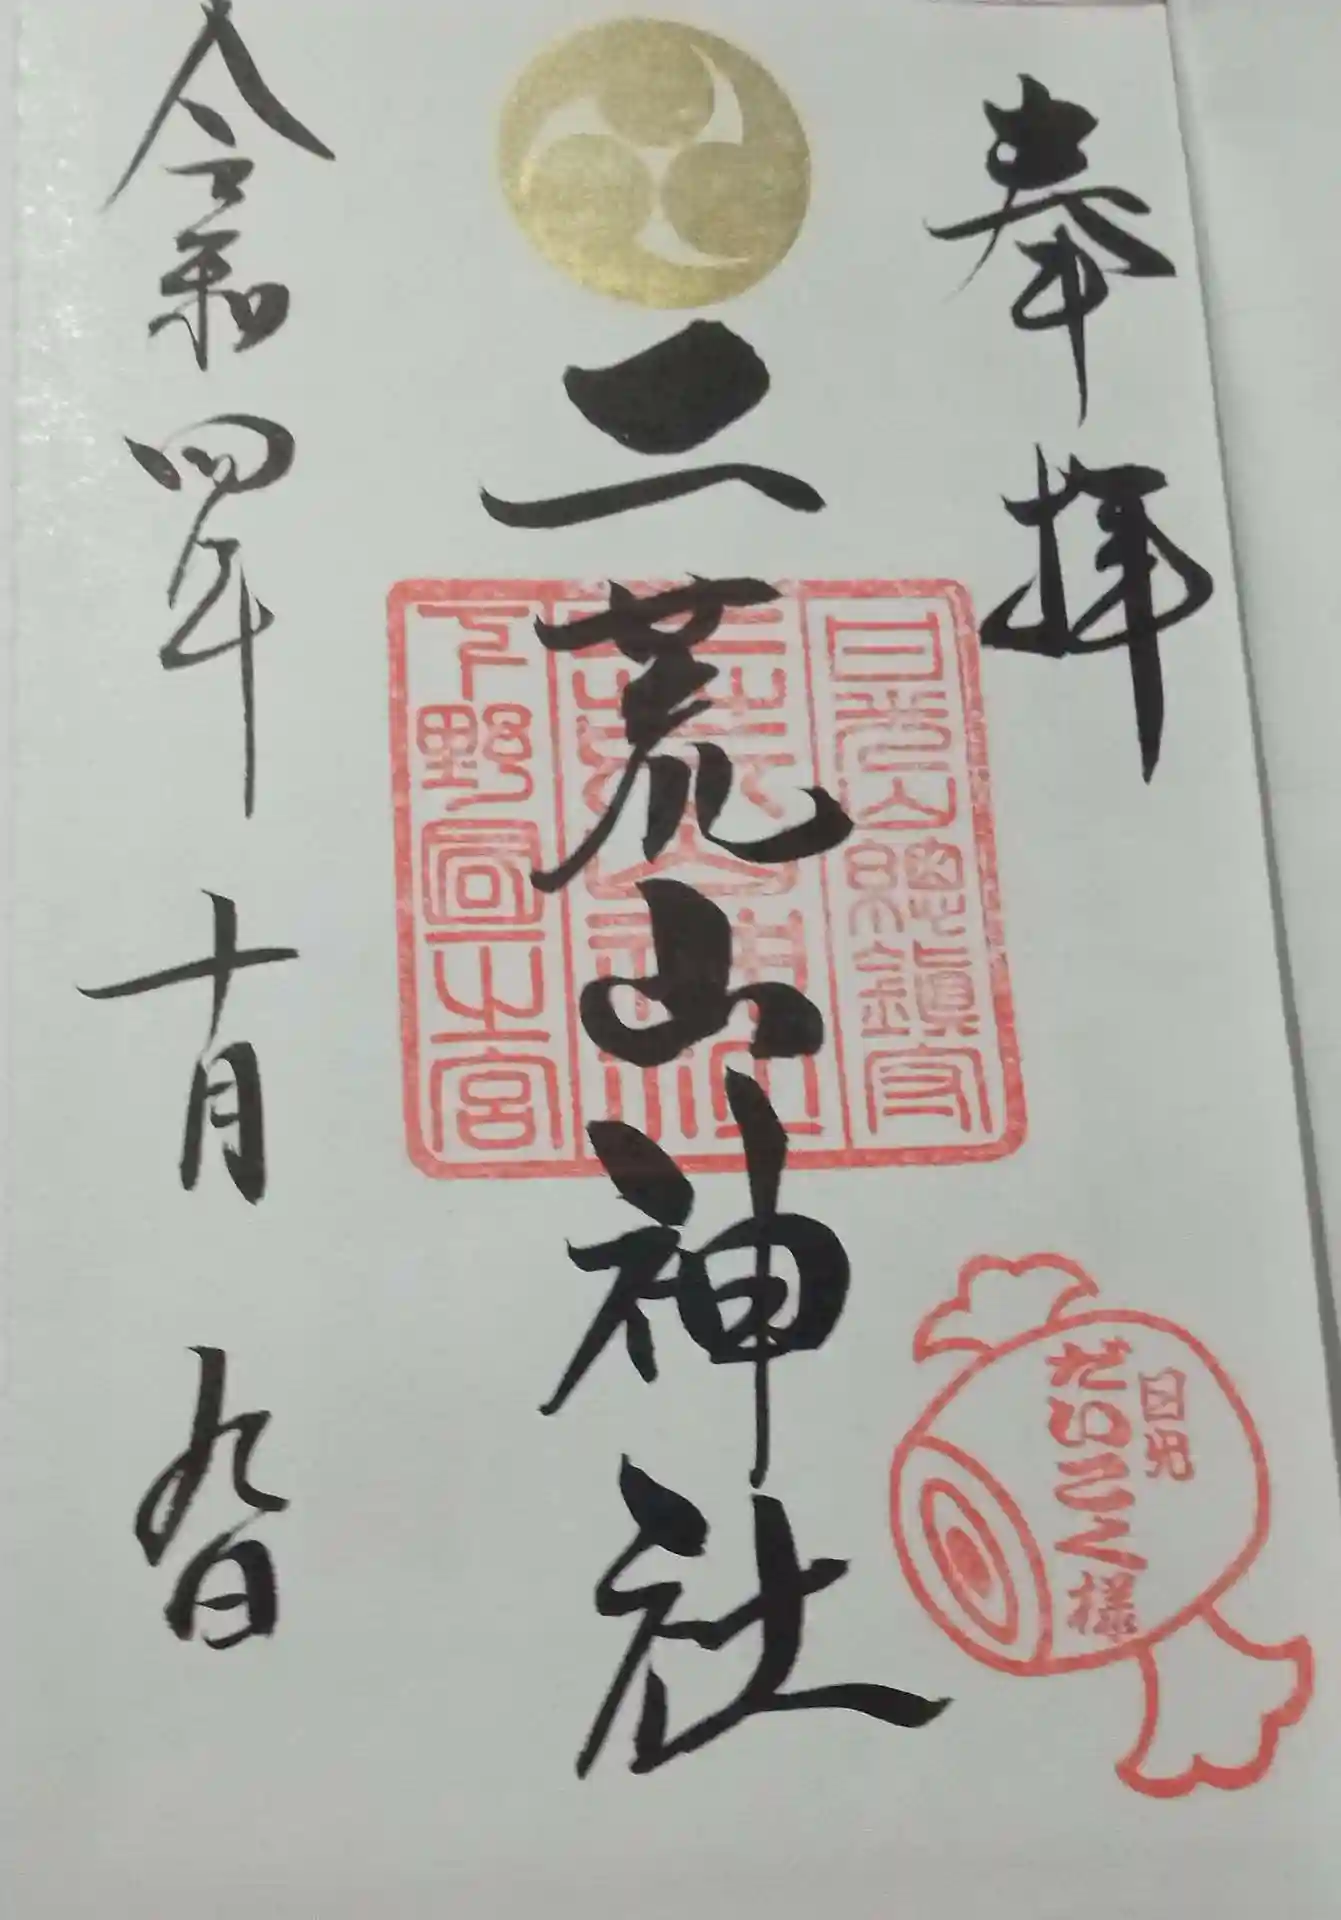 奉拝
日光だいこく様
日光山総鎮守
二荒山神社
二荒山神社
下野國一之宮
令和四年十月九日